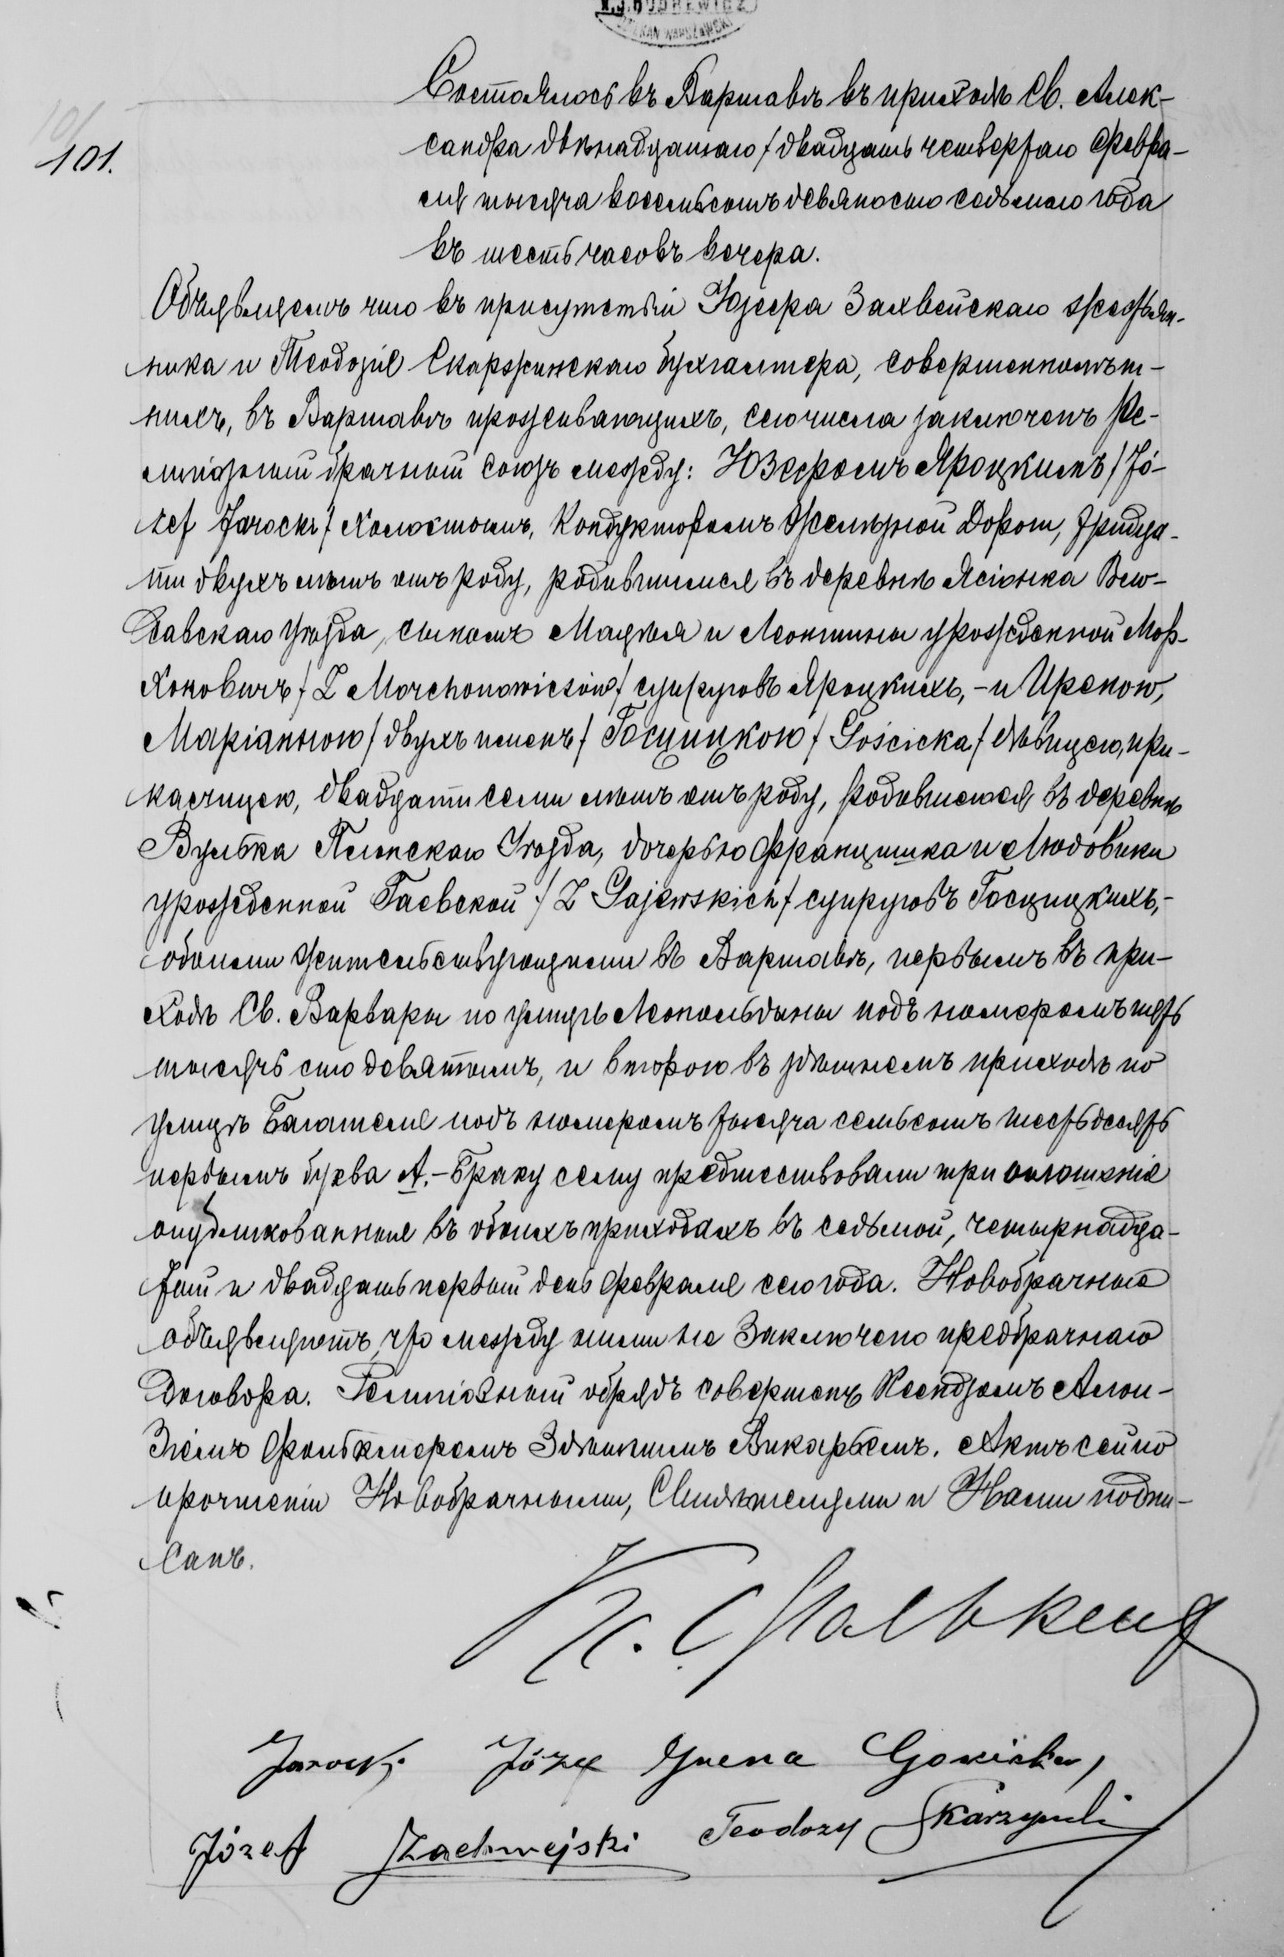 101.
Состоялось въ Варшавѣ въ приходѣ Св. Алек-
сандра двѣнадцатаго / двадцать четвертаго Февра-
ля тысяча восемьсотъ девяносто седьмаго года
въ шесть часовъ вечера.
Объявляемъ что въ присутствіи Юзефа Захвейскаго
ника и Теодозія Скаржинскаго бухгалтера, совершеннолѣт-
нихъ, въ Варшавѣ проживающихъ, сего числа заключенъ Ре-
лигіозный брачный союзъ между: Юзефомъ Яроцкимъ / Jó-
zef Jarocki / холостымъ, Кондукторомъ Желѣзной Дороги, тридца-
ти двухъ лѣтъ отъ роду, родившимся въ деревнѣ Ясіонка Вло-
давскаго уѣзда, сыномъ Мацѣя и Леонтины урожденной Мор-
хоновичъ / Z Morchonowiczów / супруговъ Яроцкихъ, - и Иреною,
Маріанною / двухъ именъ / Госцицкою / Gościcka / дѣвицею, при-
кащицею, двадцати семи лѣтъ отъ роду, родившеюся въ деревнѣ
Вулька Уѣзда, дочерью Францишка и Людовики
урожденной Гаевской / Z Gajewskich / супруговъ Госцицкихъ, -
обоими жительствующими въ Варшавѣ, первымъ въ при-
ходѣ Св. Варвары по улицѣ Леопольдины подъ номеромъ пять
тысячъ сто девятымъ, и второю въ здѣшнемъ приходѣ по
улицѣ Багателя подъ номеромъ тысяча семьсотъ шестьдесятъ
первымъ буква А. - Браку сему предшествовали три оглашенія
опубликованныя въ обоихъ приходахъ въ седьмой, четырнадца-
тый и двадцать первый день Февраля сего года. Новобрачные
объявляютъ, что между ними не заключено предбрачнаго
договора. Религіозный обрядъ совершенъ Ксендзомъ Алои-
зіемъ Здѣшнимъ Викаріемъ. Актъ сей по
прочтеніи Новобрачными, Свидѣтелями и Нами подпи-
санъ.
Jarocki Józef Irena Gościcka,
Józef Zachwejski Teodozy Skarzyński